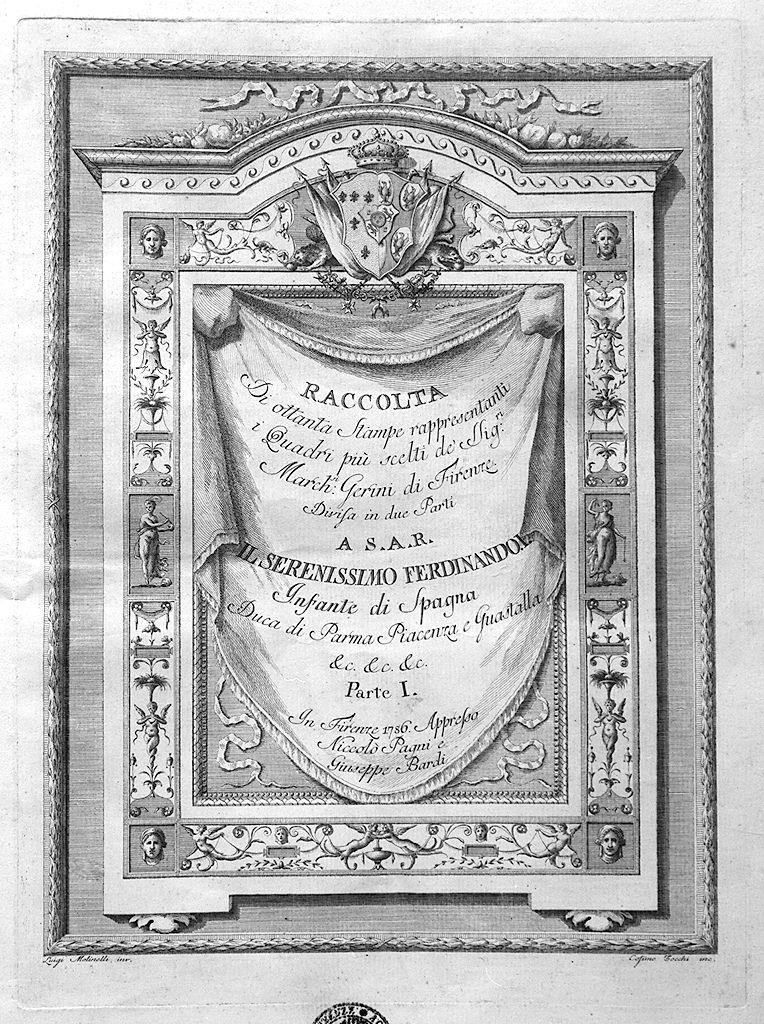 RACCOLTA
Di ottanta Stampe rappresentanti
i Quadri più scelti de' Sig.ri
March.si Gerini di Firenze
Divisa in due Parti
A S.A.R.
IL SERENISSIMO FERDINANDO I.
Infante di Spagna
Duca di Parma Piacenza e Guastalla
&c. &c. &c.
Parte I.
In Firenze 1786. Appresso
Niccolò Pagni e
Giuseppe Bardi
Luigi Molinelli, inv.
Cosimo Zocchi inc.